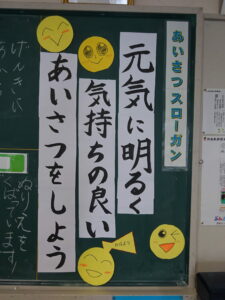 あいさつスローガン
元気に明るく
気持ちの良い
あいさつをしよう
おはよう
げんきに
ぬりえを